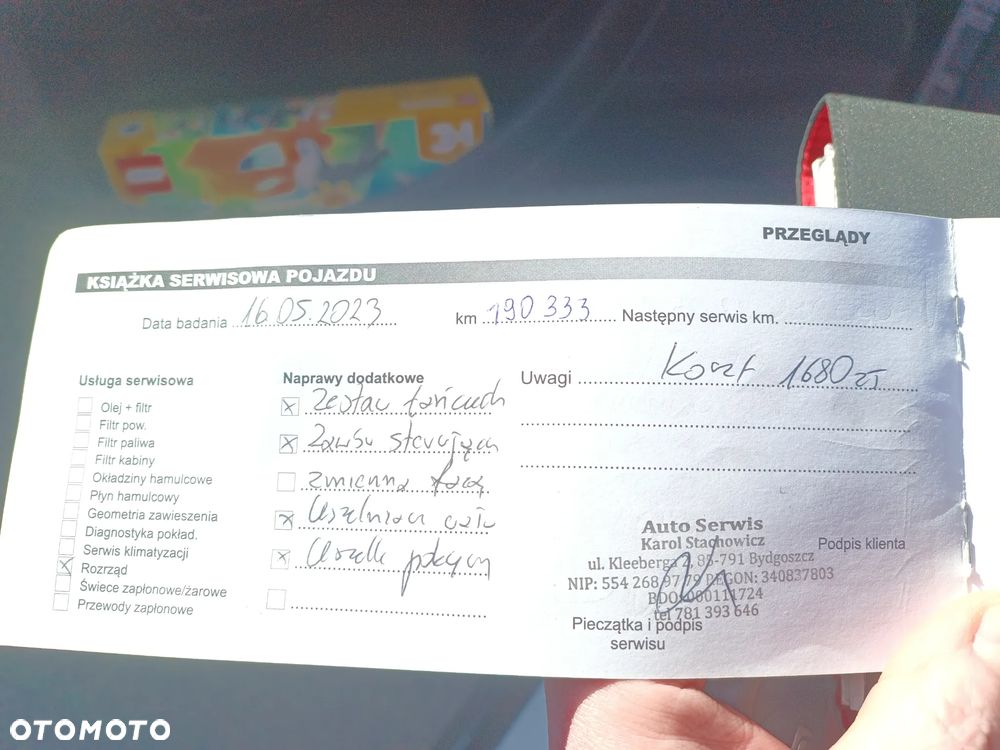 PRZEGLĄDY
KSIĄŻKA SERWISOWA POJAZDU
Data badania 16.05.2023 km 190 333 Następny serwis km.
Usługa serwisowa
Olej + filtr
Filtr pow.
Filtr paliwa
Filtr kabiny
Okładziny hamulcowe
Płyn hamulcowy
Geometria zawieszenia
Diagnostyka pokład.
Serwis klimatyzacji
Rozrząd
Świece zapłonowe/żarowe
Przewody zapłonowe
Naprawy dodatkowe
Zestaw łańcuch
Zawór sterujący
zmienna faz
Uszczelniacz wału
Uszcelk pokryw
Uwagi Koszt 1680 zł
Auto Serwis
Karol Stachowicz
ul. Kleeberga 2, 85-791 Bydgoszcz
NIP: 554 268 97 79 REGON: 340837803
BDO: 000111724
tel 781 393 646
Podpis klienta
Pieczątka i podpis
serwisu
OTOMOTO